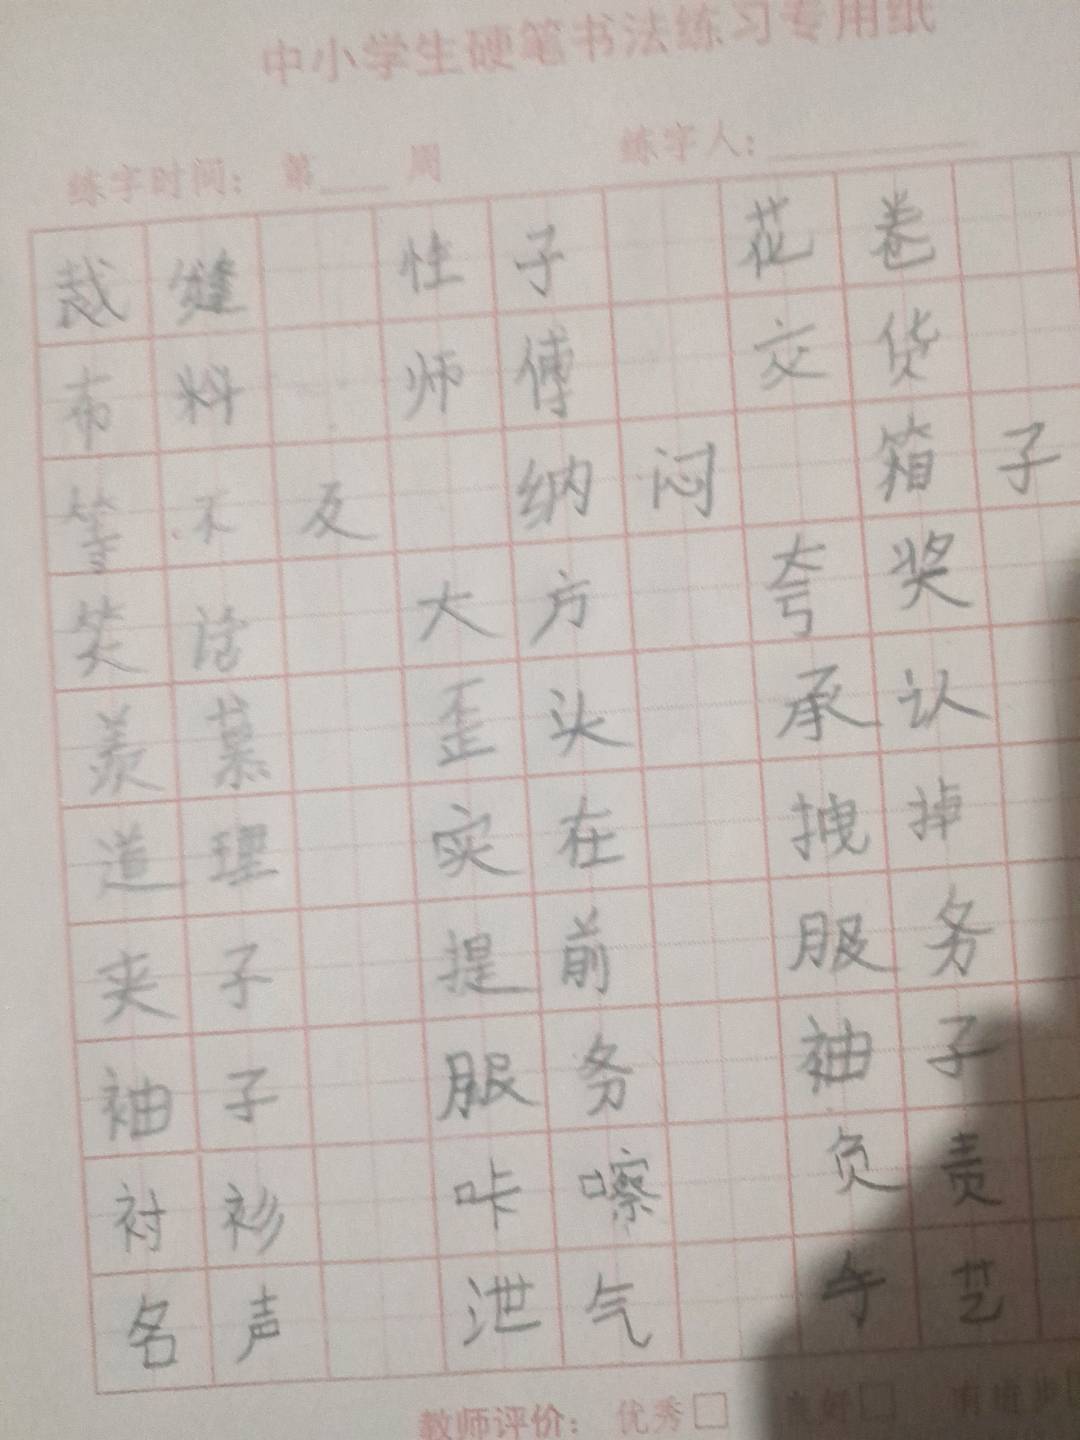 中小学生硬笔书法练习专用纸
练字时间： 第 周 练字人：
裁缝 性子 花卷
布料 师傅 交货
等不及 纳闷 箱子
笑话 大方 夸奖
羡慕 歪头 承认
道理 实在 拽掉
夹子 提前 服务
袖子 服务 袖子
衬衫 咔嚓 负责
名声 泄气 手艺
教师评价： 优秀 良好 有进步